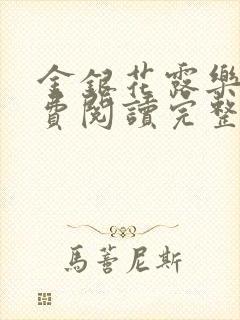 金銀花露樂
費閱讀完整
馬薈尼斯